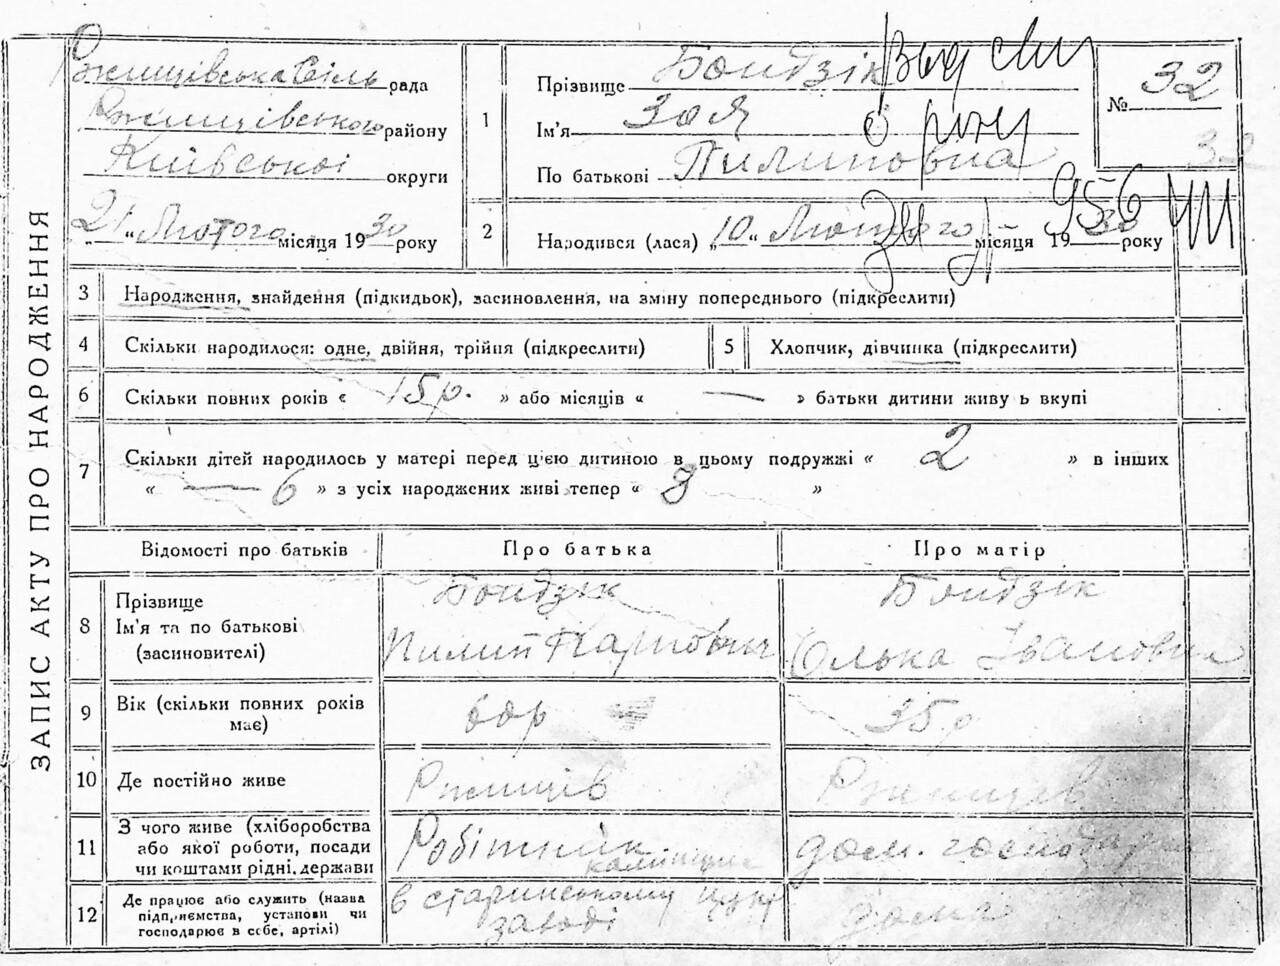 ЗАПИС АКТУ ПРО НАРОДЖЕННЯ
Ржищівська Сіль рада
Ржищівського району
Київської округи
„21“ Лютого місяця 1930 року
1
Прізвище Бондзік
Ім'я Зоя
По батькові Пилиповна
№ 32
32
Выд сви
о рож
956
2
Народився (лася) „10“ Лютого місяця 1930 року
3
Народження, знайдення (підкидьок), засиновлення, на зміну попереднього (підкреслити)
4
Скільки народилося: одне, двійня, трійня (підкреслити)
5
Хлопчик, дівчинка (підкреслити)
6
Скільки повних років « 15 р. » або місяців « — » батьки дитини живу ь вкупі
7
Скільки дітей народилось у матері перед ц'єю дитиною в цьому подружжі « 2 » в інших
« — 6 » з усіх народжених живі тепер « »
Відомості про батьків
Про батька
Про матір
8
Прізвище
Ім'я та по батькові
(засиновителі)
Бондзік
Пилип Карпович
Бондзік
Олька Івановна
9
Вік (скільки повних років
має)
60р
35р
10
Де постійно живе
Ржищів
Ржищев
11
З чого живе (хліборобства
або якої роботи, посади
чи коштами рідні, держави
Робітник
дом. господарка
12
Де працює або служить (назва
підприємства, установи чи
господарює в себе, артілі)
в старинському цукр
заводі
дома